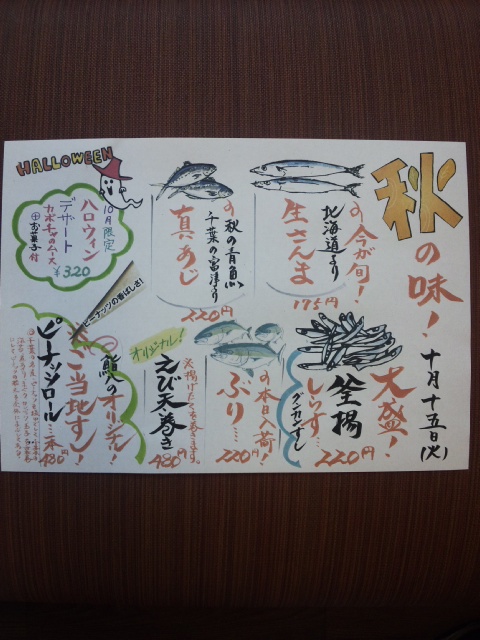 秋の味!
十月十五日(火)
今が旬!
北海道より
生さんま
175円
秋の青魚
千葉の富津より
真あじ
220円
HALLOWEEN
10月限定
ハロウィン
デザート
カボチャのムース
⊕お菓子付
¥320
大盛!
釜揚
しらす…
グンカンすし
220円
本日入荷!
ぶり…
220円
オリジナル!
えび天巻き
480円
ピーナッツの香ばしさ!
鮨人のオリジナル!
ご当地すし!
ピーナッツロール…一本
480円